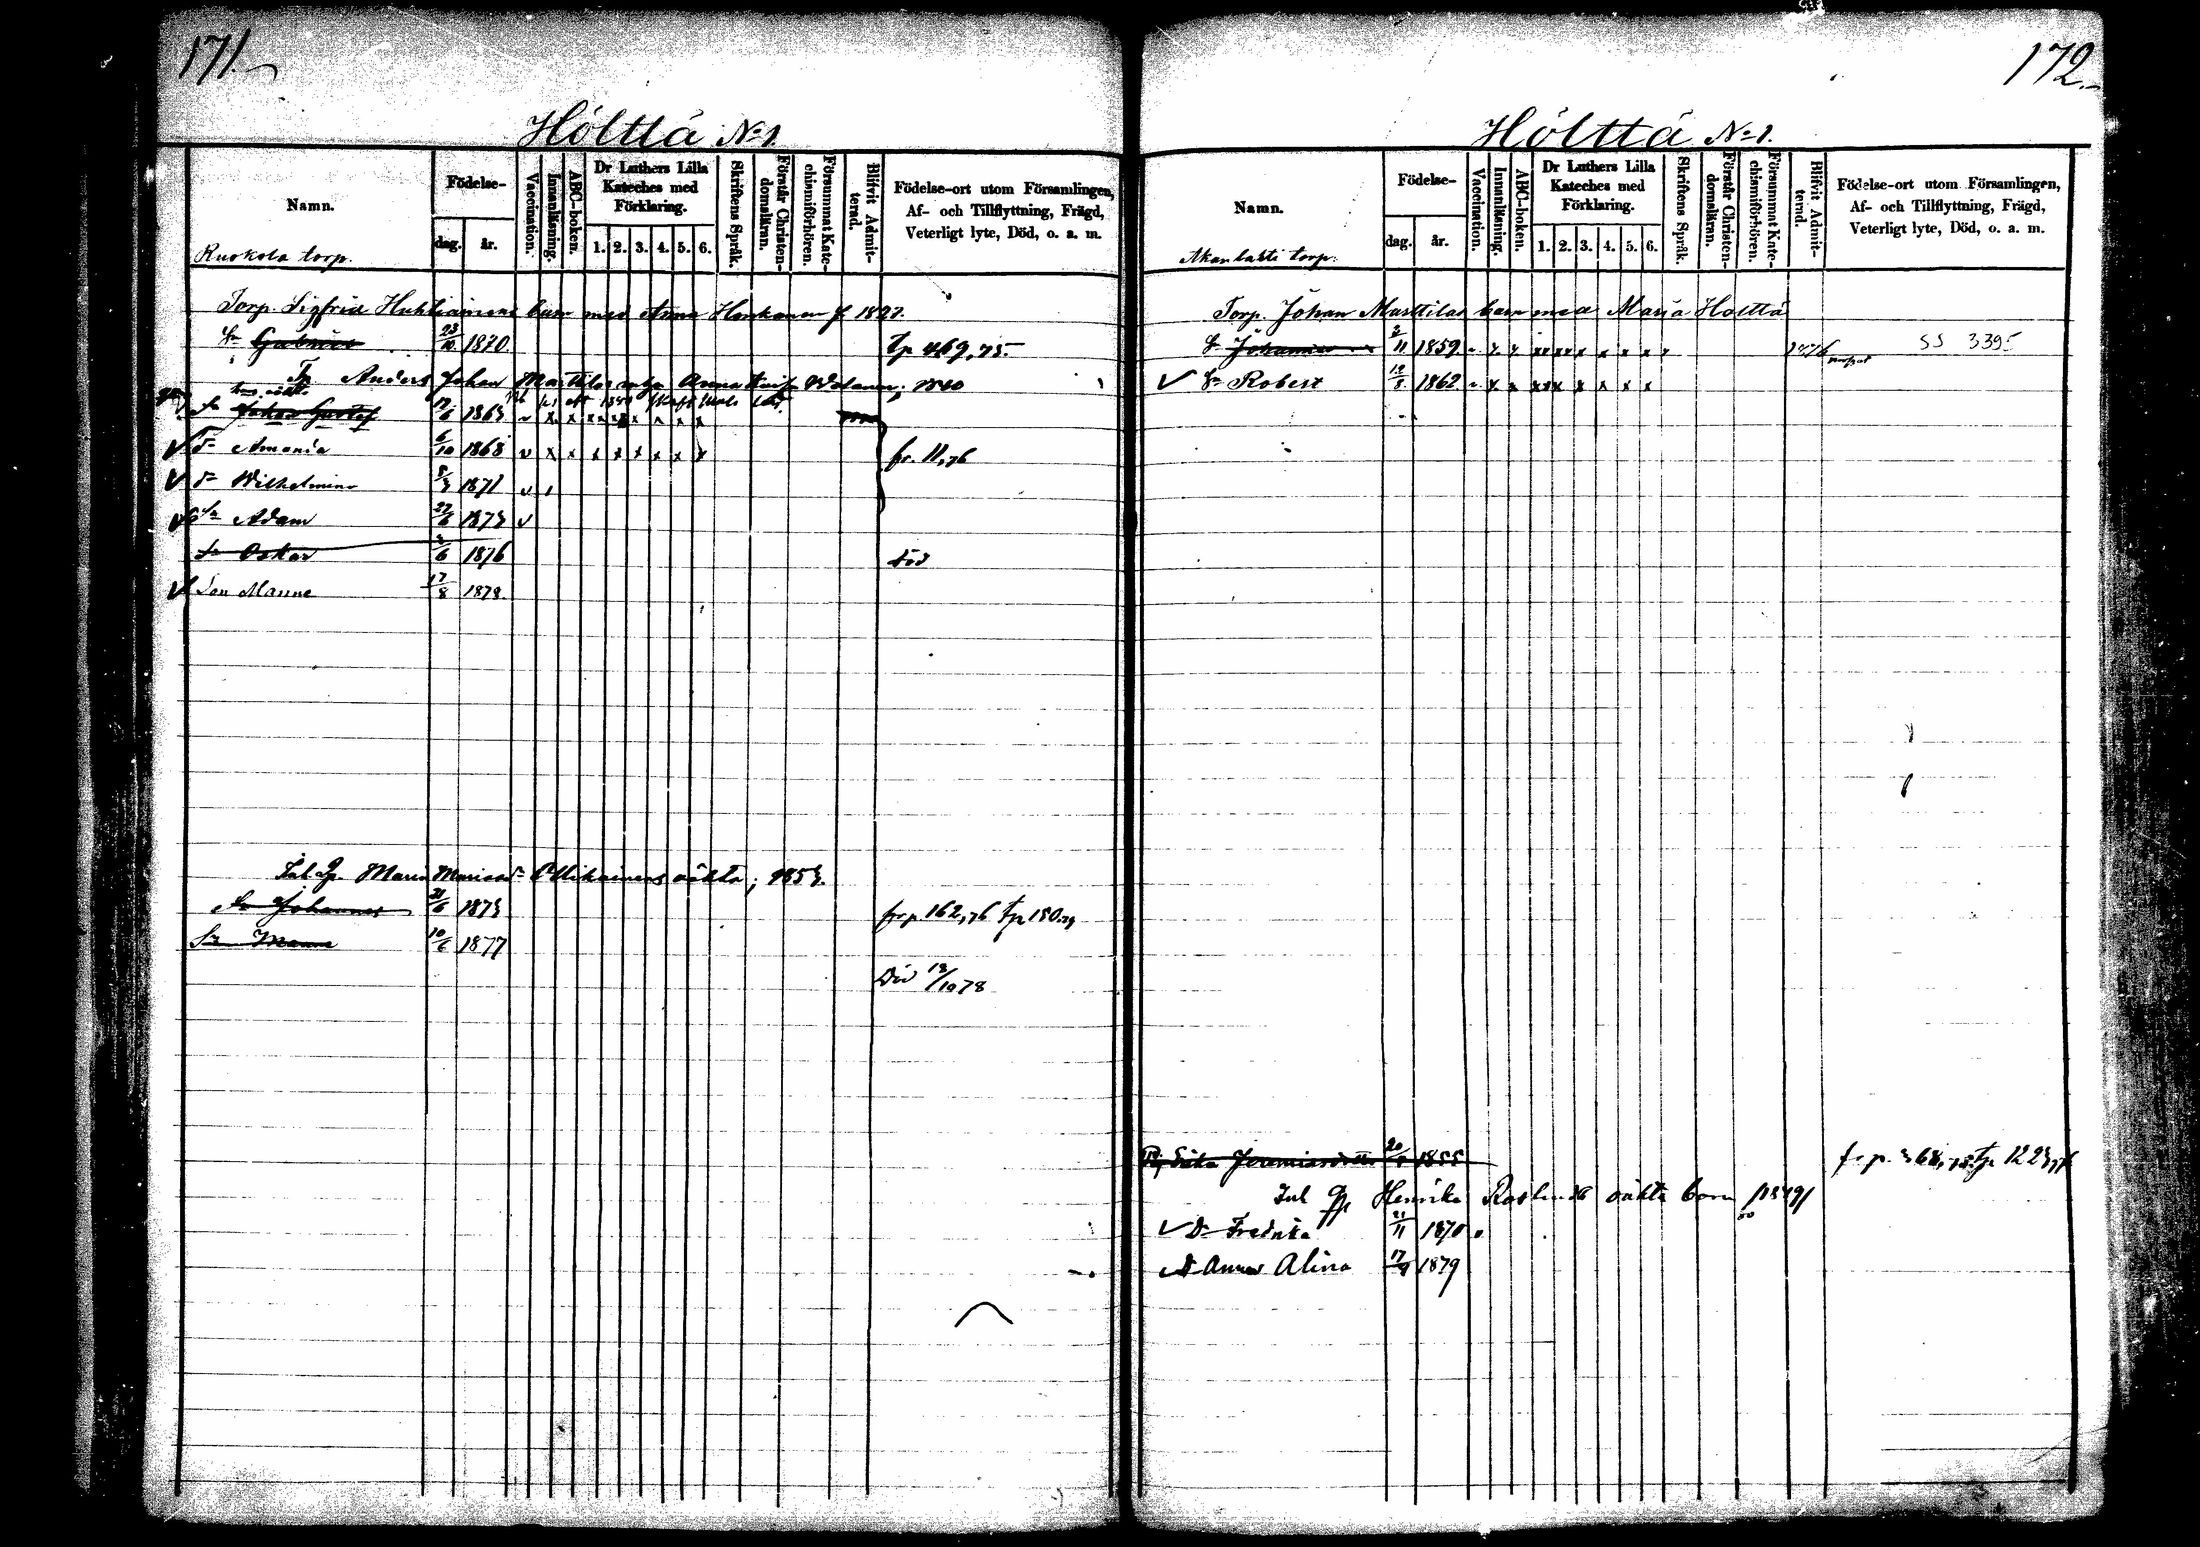 171.
Hölttä No 1.
Namn.
Födelse-
dag.
år.
Vaccination.
Innanläsning.
ABC-boken.
Dr Luthers Lilla Kateches med Förklaring.
1. 2. 3. 4. 5. 6.
Skriftens Språk.
Förstår Christendomsläran.
Försummat Katechismiförhören.
Blifvit Admitterad.
Födelse-ort utom Församlingen, Af- och Tillflyttning, Frägd, Veterligt lyte, Död, o. a. m.
Ruokola torp.
Torp. Sigfrid Huhtiainens barn med Anna Honkanen f 1827.
Sn Gabriel 23/10 1870. tp 469,75.
Anders Johan Marttilas Anna 1840
Sn Johan Gustaf 1865 v x x x x x x x x x
v Dr Amanda 6/10 1868 v x x x x x x x x fr. 11,76
v Dr Wilhelmina 1871 v
v Sn Adam 27/6 1873 v
Sn Oskar 2/6 1876 död
v Son Manne 17/8 1878.
Maria Ollikainens oäkta; 1853.
Sn Johannes 21/6 1873 frp 162,76 tp 180.79
Sn Manne 10/6 1877
Död 13/10 78
172.
Hölttä No 1.
Namn.
Födelse-
dag.
år.
Vaccination.
Innanläsning.
ABC-boken.
Dr Luthers Lilla Kateches med Förklaring.
1. 2. 3. 4. 5. 6.
Skriftens Språk.
Förstår Christendomsläran.
Försummat Katechismiförhören.
Blifvit Admitterad.
Födelse-ort utom Församlingen, Af- och Tillflyttning, Frägd, Veterligt lyte, Död, o. a. m.
Akanlahti torp.
Torp. Johan Marttilas barn med Maria Hölttä
Sn Johannes 2/11 1859 x x x x x x x x x 1876 SS 335
v Sn Robert 12/8 1862 x x x x x x x x
Jeremiasdotter 1855
Inh Henrika oäkta barn f 1849
v Dr Fredrika 21/11 1870
D Anna Alina 1879